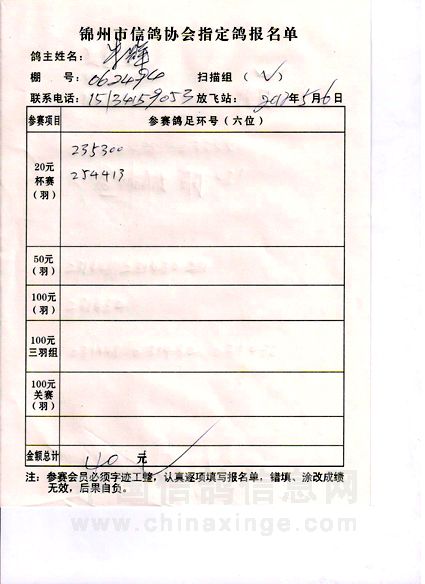 锦州市信鸽协会指定鸽报名单
鸽主姓名：
棚　号：062494　扫描组（✓）
联系电话：15134159053 放飞站：　年5月6日
参赛项目　参赛鸽足环号（六位）
20元
杯赛
（羽）
235300
254413
50元
（羽）
100元
（羽）
100元
三羽组
100元
关赛
（羽）
金额总计　40 元
注：参赛会员必须字迹工整，认真逐项填写报名单，错填、涂改成绩
无效，后果自负。
中国信鸽信息网
www.chinaxinge.com